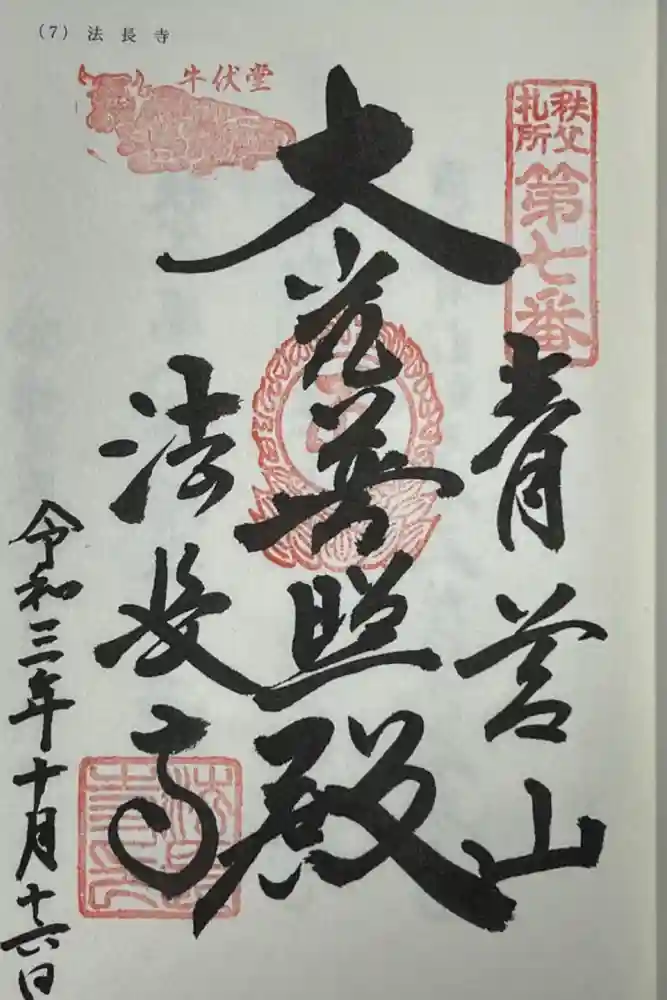 (7) 法長寺
牛伏堂
秩父
札所
第七番
青苔山
大光普照殿
法長寺
令和三年十月十六日